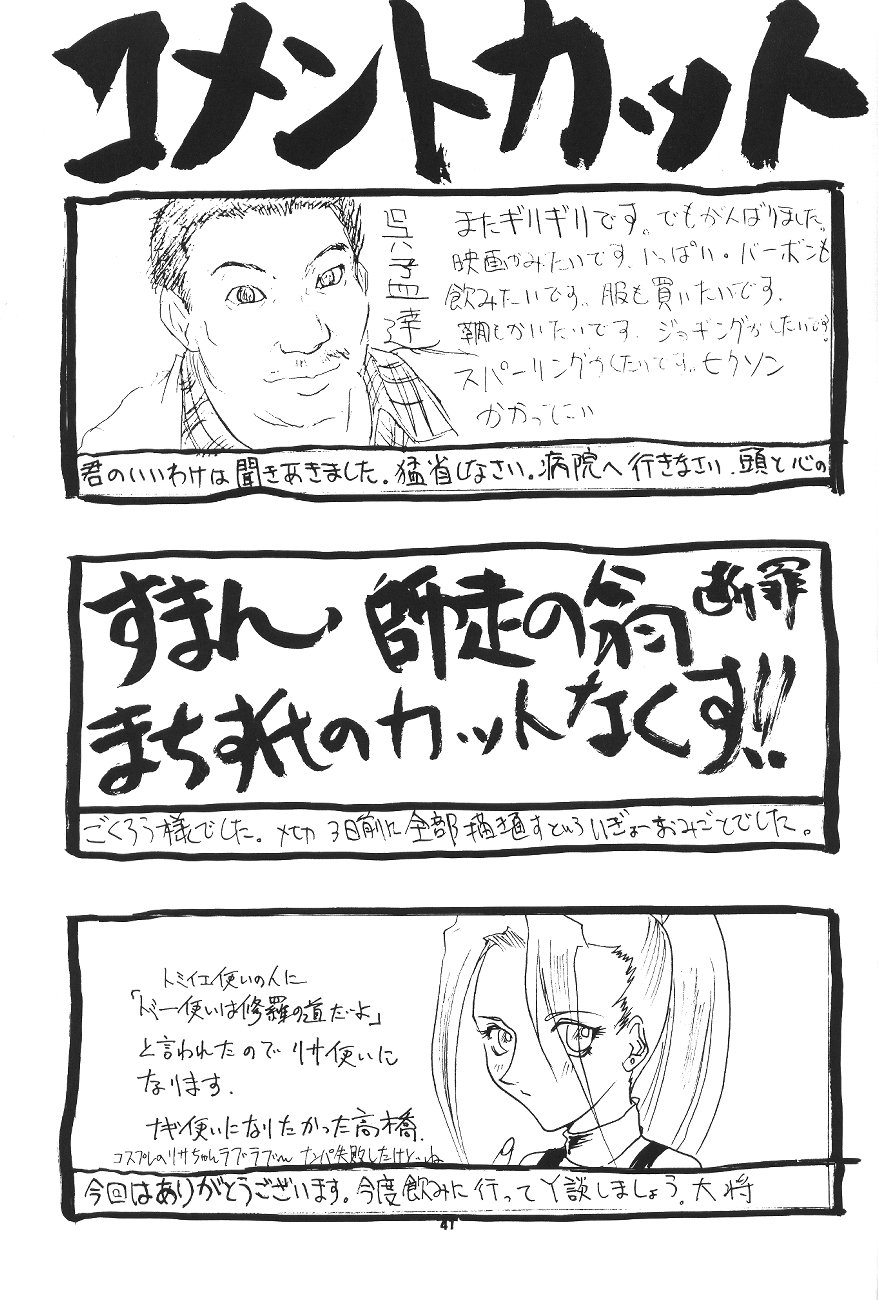 コメントカット
またギリギリです。でもがんばりました。
映画がみたいです、いっぱい。バーボンも
飲みたいです。服も買いたいです。
もかいたいです。ジョギングがしたいです。
スパーリングがしたいです。ヒクソン
かかってこい
君のいいわけは聞きあきました。猛省しなさい。病院へ行きなさい、頭と心の
すまん、師走の翁 断罪
まちす代のカットなくす!!
ごくろう様でした。〆切3日前に全部描き直すといういぎょーおみごとでした。
トミイエ使いの人に
「ドベー使いは修羅の道だよ」
と言われたので リサ使いに
なります。
ナギ使いになりたかった高橋。
コスプレのリサちゃんラブラブ〜ん ナンパ失敗したけど…ね
今回はありがとうございます。今度飲みに行ってY談しましょう。大将
41